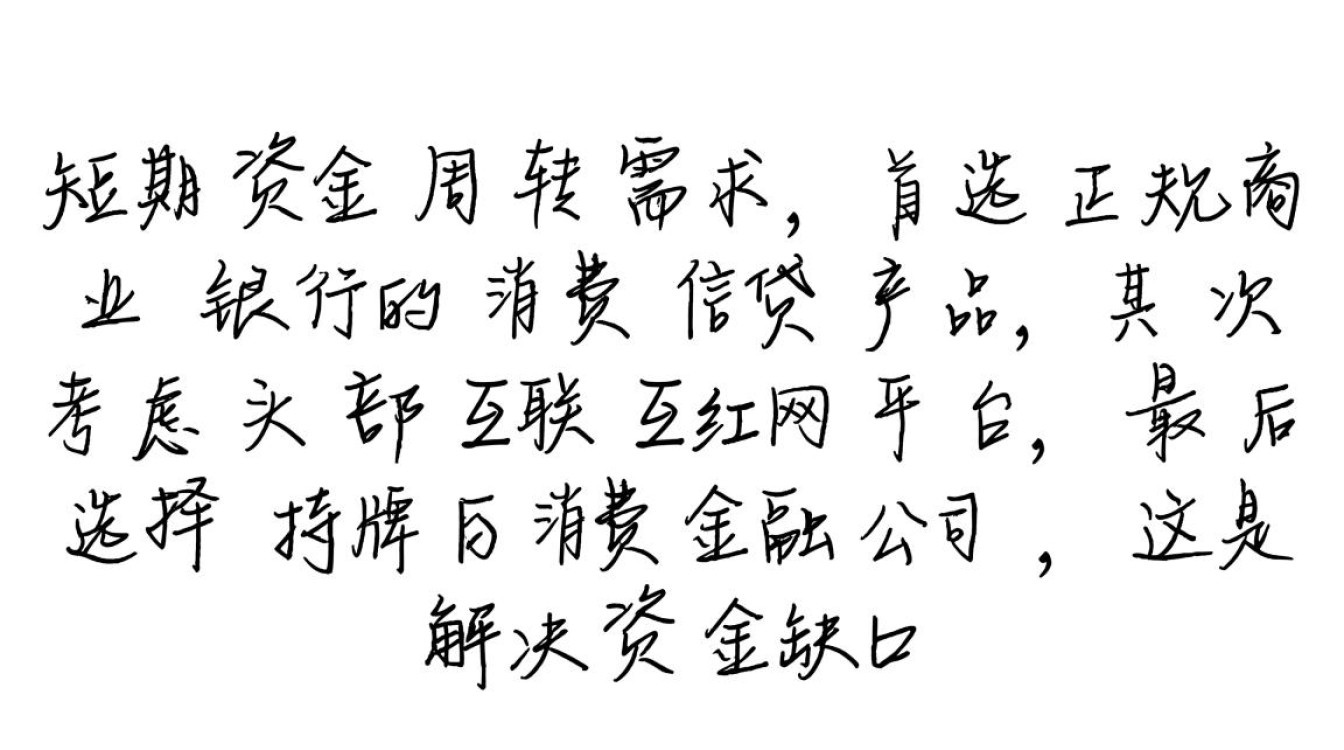 短期资金周转需求，首选正规商
业银行的消费信贷产品，其次
考虑头部互联互红网平台，最后
选择持牌白消费金融公司，这是
解决资金缺口